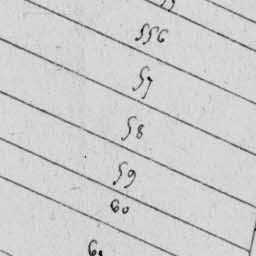 556
57
58
59
60